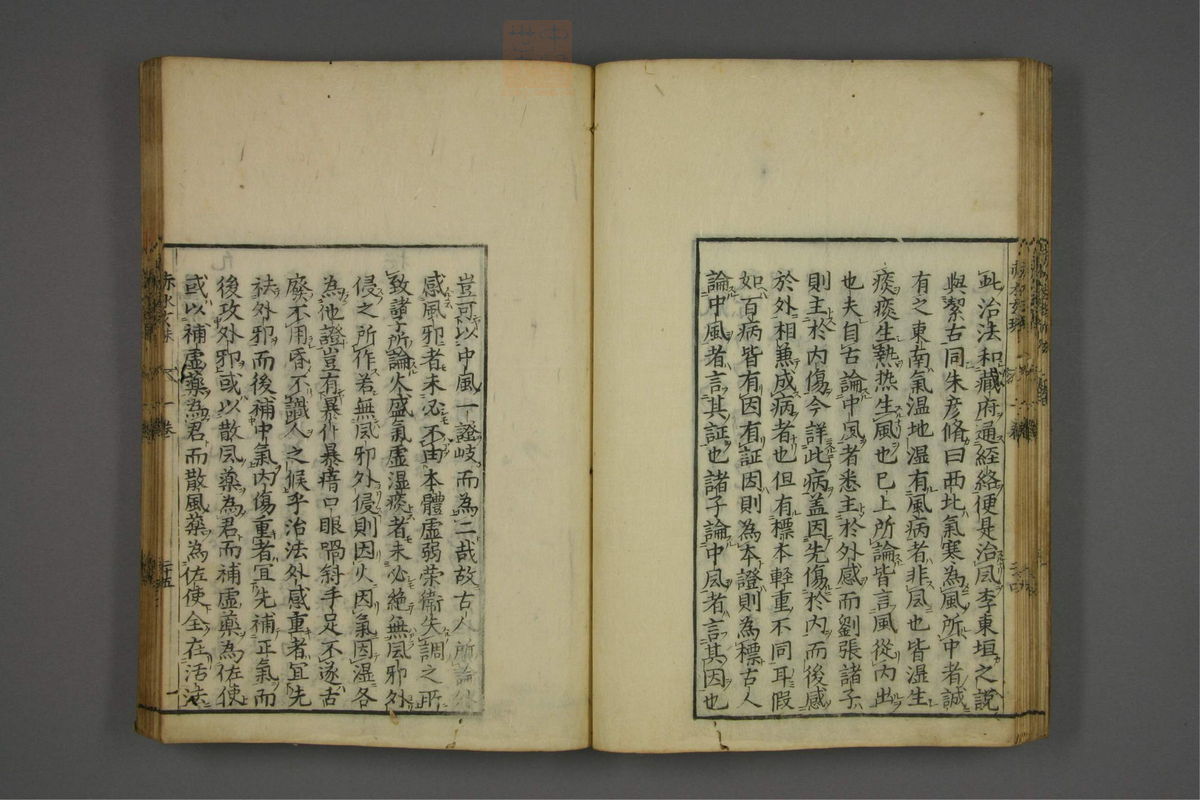 此治法和臟府通經絡便是治風李東垣之說
與潔古同朱彦脩曰西北氣寒為風所中者誠
有之東南氣温地湿有風病者非風也皆湿生
痰痰生熱热生風也已上所論皆言風從內出
也夫自古論中風者悉主於外感而劉張諸子
則主於内傷今詳此病盖因先傷於内而後感
於外相兼成病者也但有標本軽重不同耳假
如百病皆有因有証因則為本證則為標古人
論中風者言其証也諸子論中風者言其因也
豈可以中風一證岐而為二哉故古人所論外
感風邪者未必不由本體虚弱荣衛失調之所
致諸子所論火盛氣虚湿痰者未必絶無風邪外
侵之所作若無風邪外侵則因火因氣因湿各
為他證豈有暴仆暴瘖口眼喎斜手足不遂古
廢不用昏不識人之候乎治法外感重者宜先
祛外邪而後補中氣内傷重者宜先補正氣而
後攻外邪或以散風藥為君而補虚藥為佐使
或以補虚藥為君而散風藥為佐使全在活法
赤水玄珠 一巻 二十五